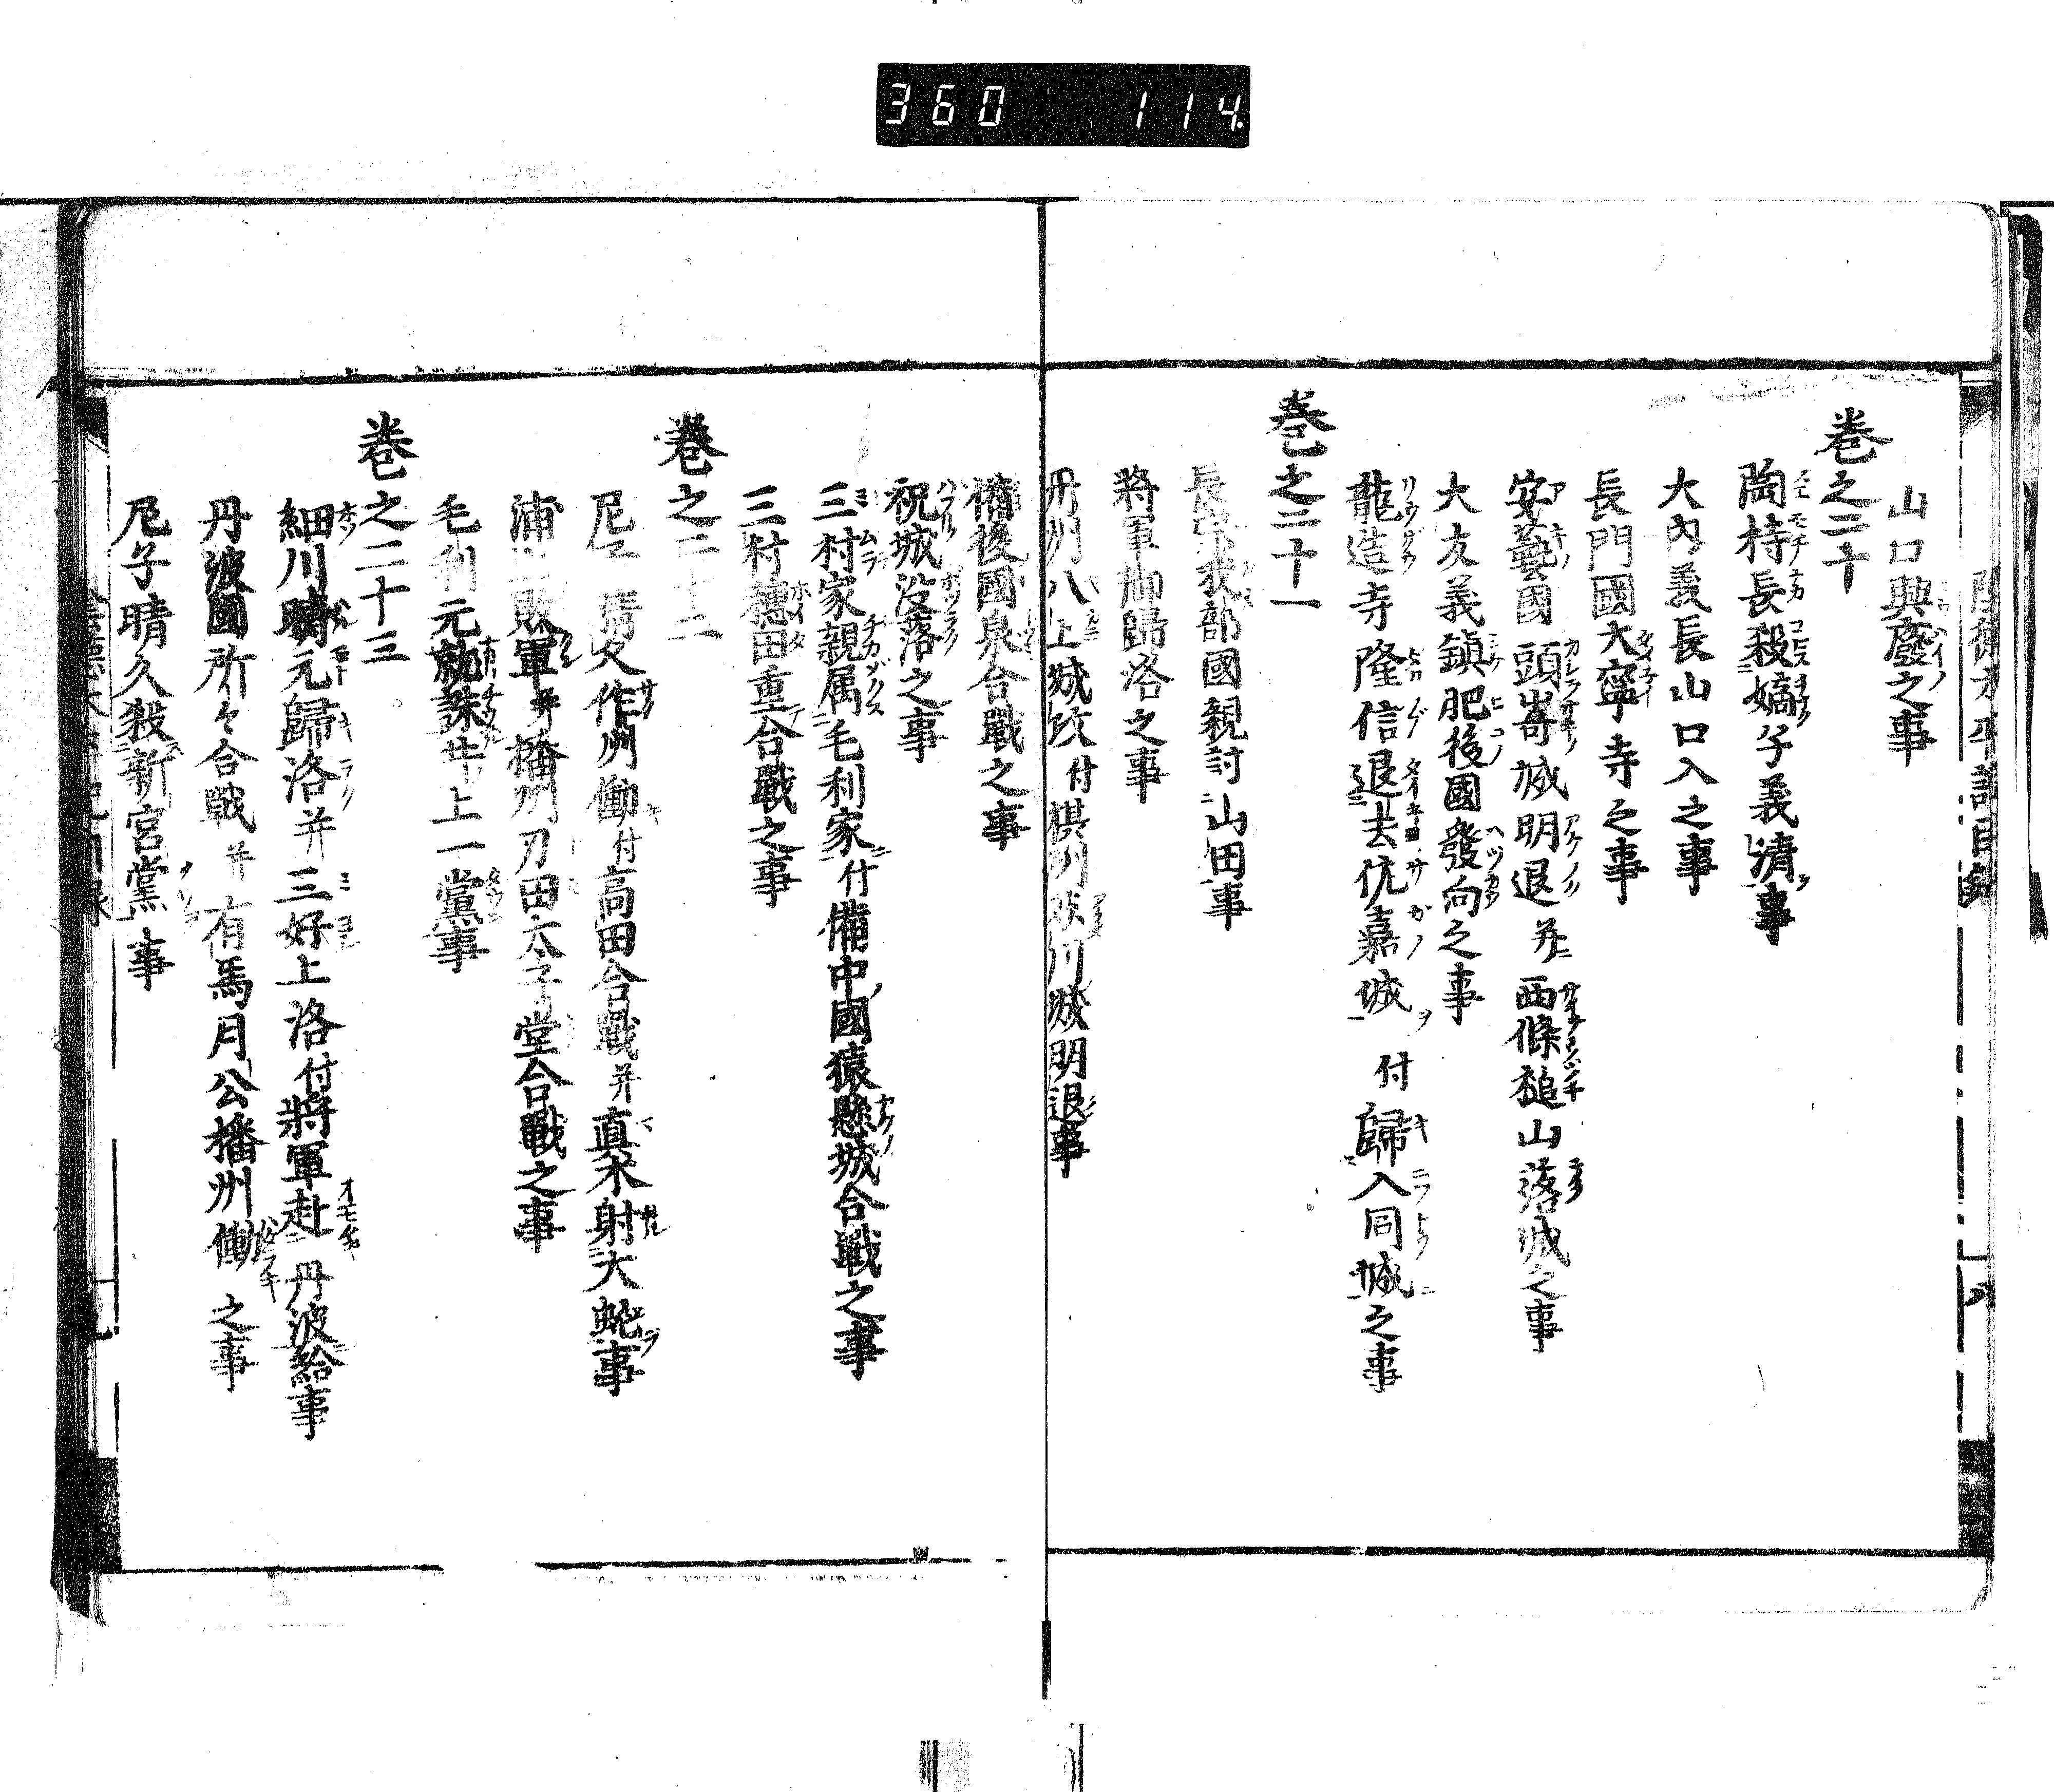 360 114
山口興廢之事
巻之二十
陶持長殺嫡子義清事
大内義長山口入之事
長門國大寧寺之事
安藝國頭崎城明退并西條槌山落城之事
大友義鎮肥後國發向之事
龍造寺隆信退去佐嘉城付歸入同城之事
巻之二十一
長宗我部國親討山田事
將軍御歸洛之事
丹州八上城攻付 川城明退事
備後國泉合戰之事
祝城没落之事
三村家親属毛利家付備中國猿懸城合戰之事
三村穗田重合戰之事
巻之二十二
尼子晴久作州働付高田合戰并真木射大蛇事
浦上敗軍并播州刀田太子堂合戰之事
毛利元就誅井上一黨事
巻之二十三
細川晴元歸洛并三好上洛付將軍赴丹波給事
丹波國所々合戰并有馬月公播州働之事
尼子晴久殺新宮黨事